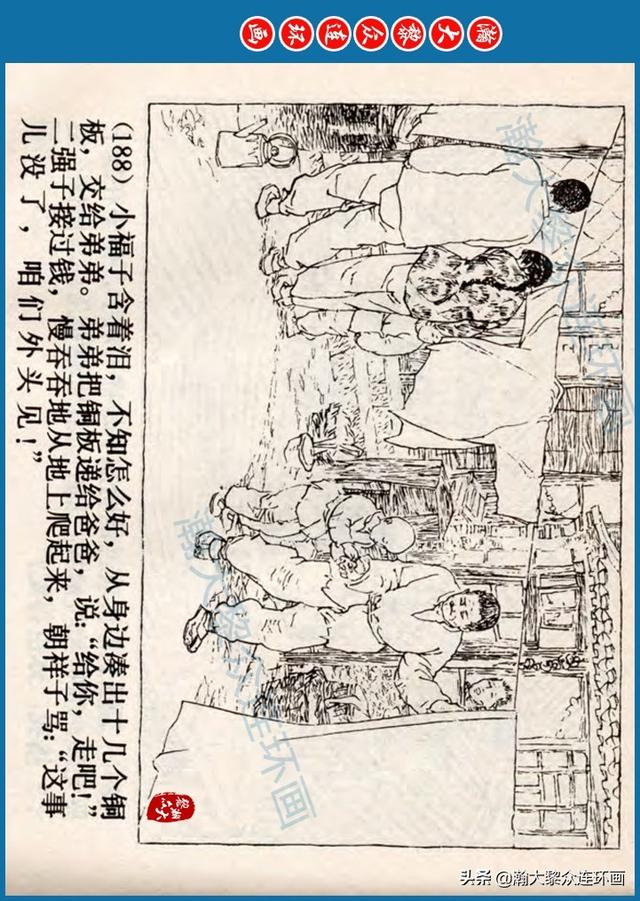 瀚大黎众连环画
瀚大黎众连环画
(188) 小福子含着泪，不知怎么好，从身边凑出十几个铜
板，交给弟弟。弟弟把铜板递给爸爸，说：“给你，走吧！”
二强子接过钱，慢吞吞地从地上爬起来，朝祥子骂：“这事
儿没了，咱们外头见！”
瀚大黎众连环画
瀚大黎众
头条 @瀚大黎众连环画